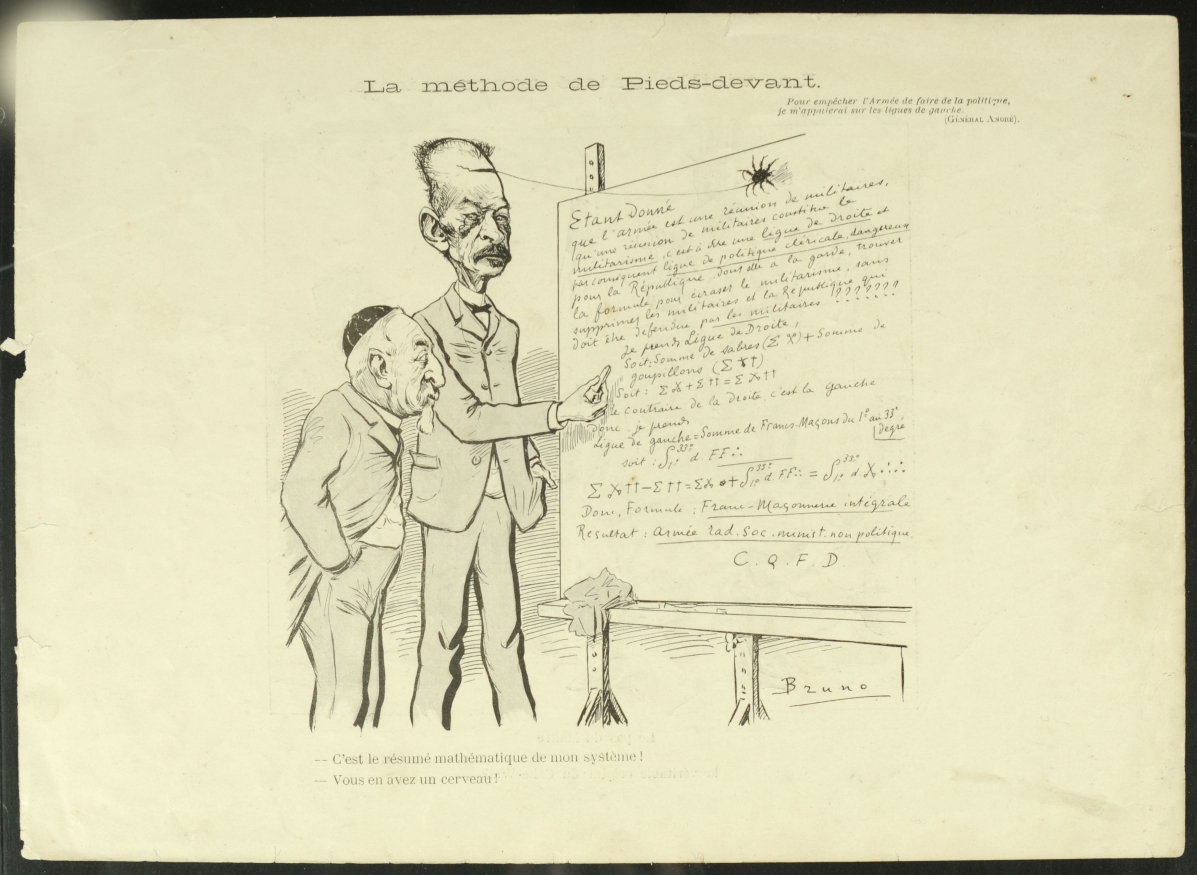 La méthode de Pieds-devant.
Pour empêcher l'Armée de faire de la politique,
je m'appuierai sur les ligues de gauche.
(GÉNÉRAL ANDRÉ).
Etant Donné
que l'armée est une réunion de militaires,
qu'une réunion de militaires constitue le
militarisme, c'est à dire une ligue de Droite et
par conséquent ligue de politique cléricale, dangereuse
pour la République, dont elle a la garde, trouver
la formule pour écraser le militarisme, sans
supprimer les militaires et la République qui
doit être défendue par les militaires ???????
Je prends Ligue de Droite,
Soit: Somme de sabres (Σ ) + Somme de
goupillons (Σ ††)
Soit : Σ + Σ †† = Σ ††
le contraire de la Droite, c'est la Gauche
donc je prends
Ligue de gauche = Somme de Francs-Maçons du 1° au 33°
degré
soit : ∫ 33° 1° d. FF∴
Σ †† — Σ †† = Σ + ∫ 33° 1° d. FF∴ = ∫ 33° 1° d
Donc, Formule : Franc-Maçonnerie intégrale
Resultat : Armée rad. Soc. minist. non politique.
C. Q. F. D.
Bruno
— C'est le résumé mathématique de mon système !
— Vous en avez un cerveau !